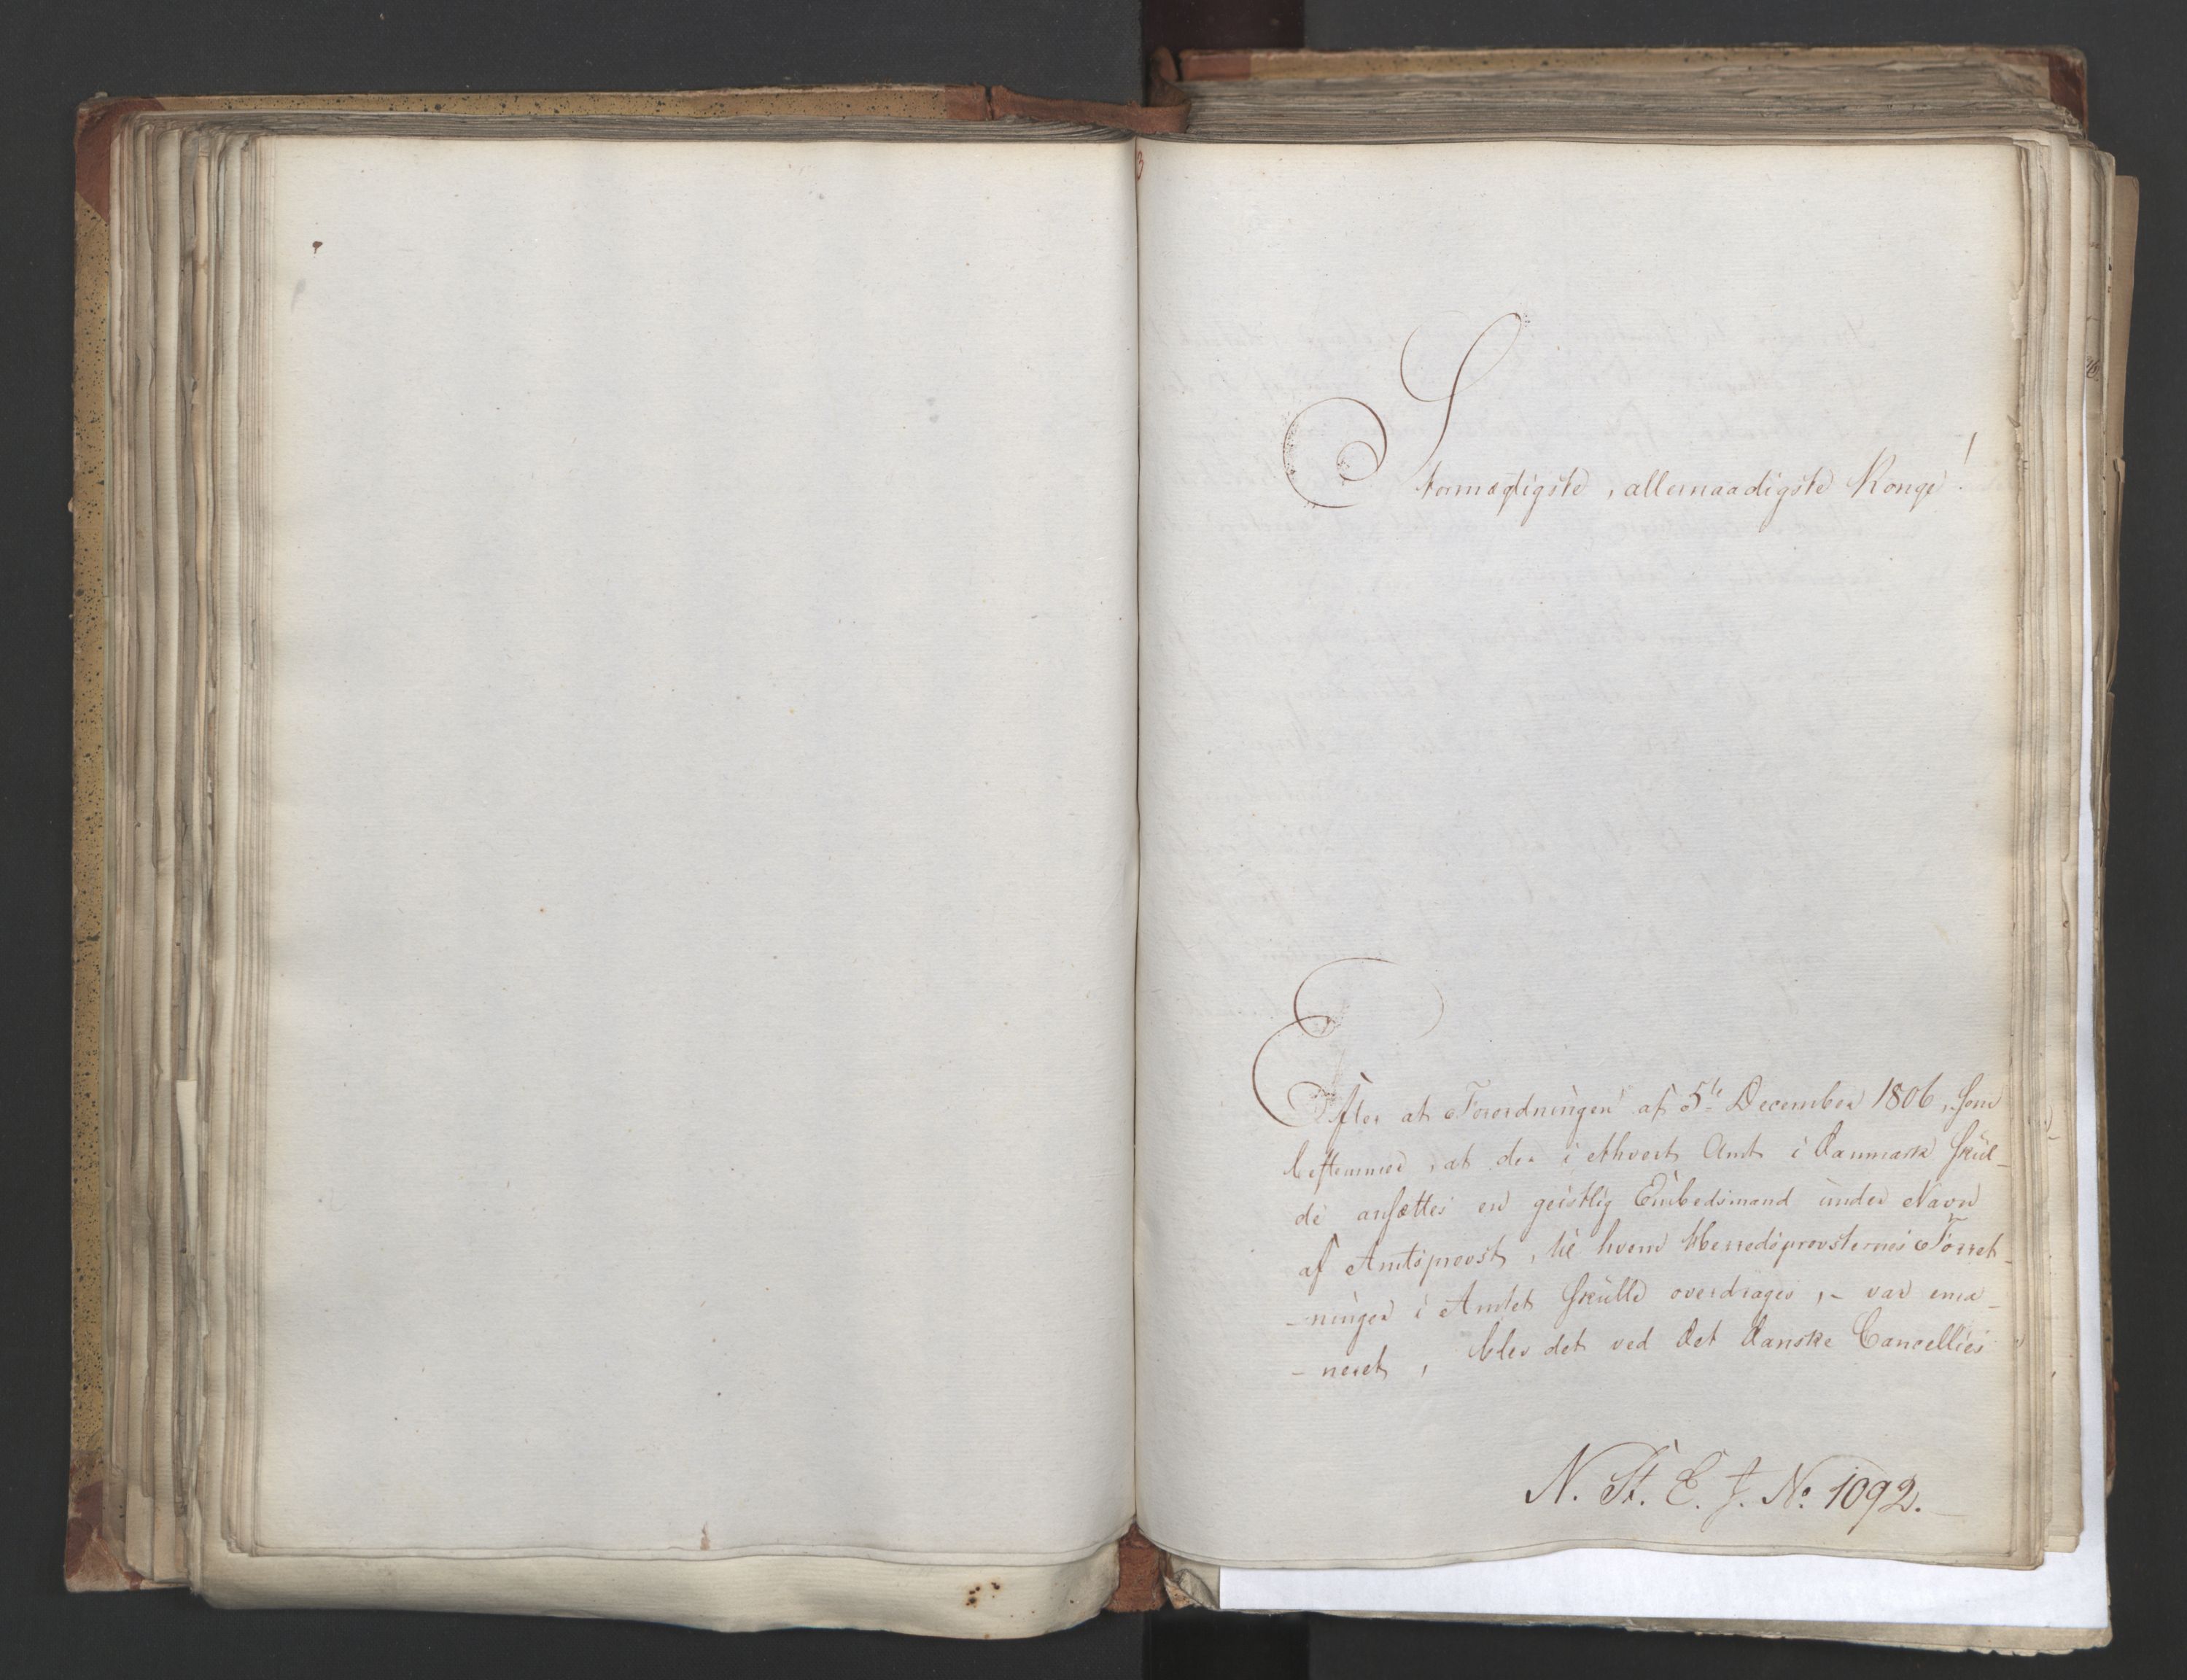 Stormægtigste, allernaadigste Konge!
Efter at Forordningen af 5te December 1806, som
bestemmer, at der i ethvert Amt i Danmark skul-
de ansættes en geistlig Embedsmand under Navn
af Amtsprovst, til hvem Herredsprovsternes Forret-
-ninger i Amtet skulle overdrages, - var ema-
-neret, blev det ved Det Danske Cancellies
N. St. E. J. No. 1092.